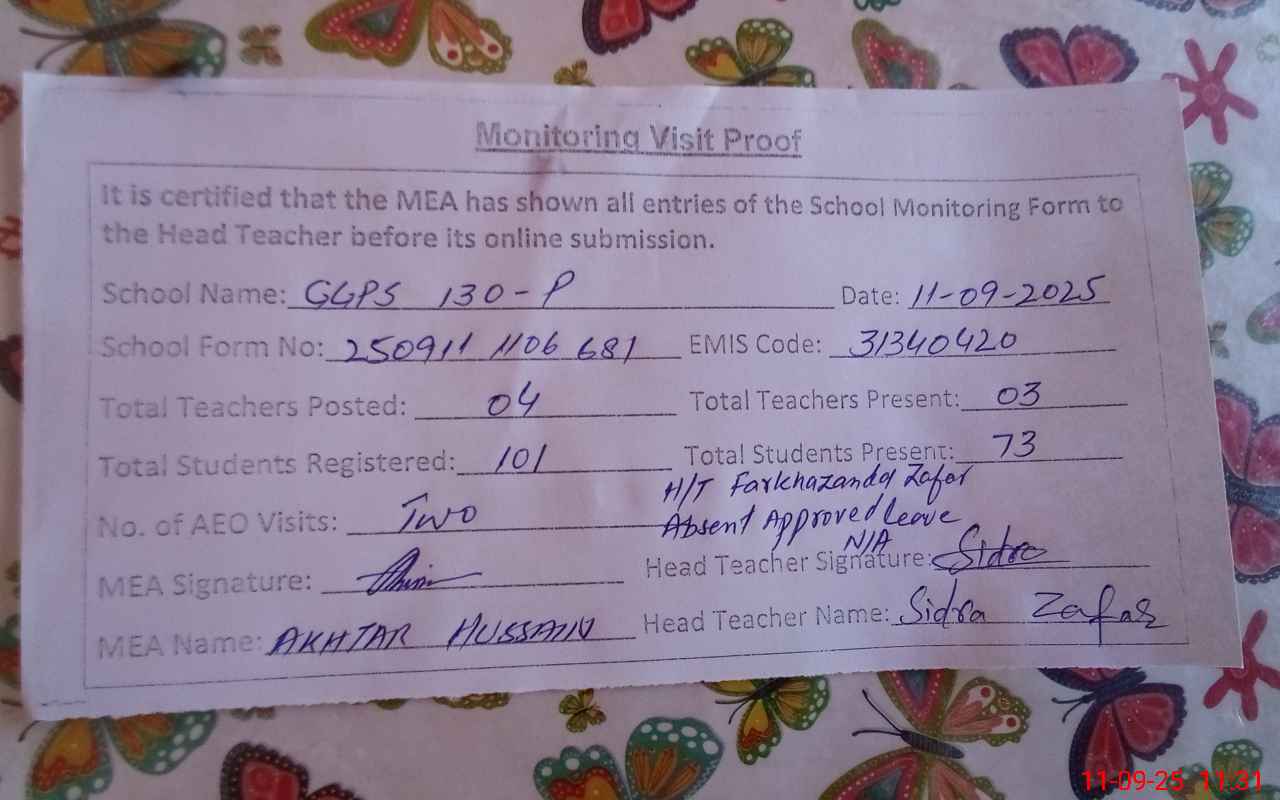 Monitoring Visit Proof
It is certified that the MEA has shown all entries of the School Monitoring Form to
the Head Teacher before its online submission.
School Name: GGPS 130-P Date: 11-09-2025
School Form No: 250911 1106 681 EMIS Code: 31340420
Total Teachers Posted: 04 Total Teachers Present: 03
Total Students Registered: 101 Total Students Present: 73
H/T Farkhazanda Zafar
No. of AEO Visits: Two Absent Approved Leave
N/A
MEA Signature: Head Teacher Signature: Sidra
MEA Name: AKHTAR HUSSAIN Head Teacher Name: Sidra Zafar
11-09-25 11:31